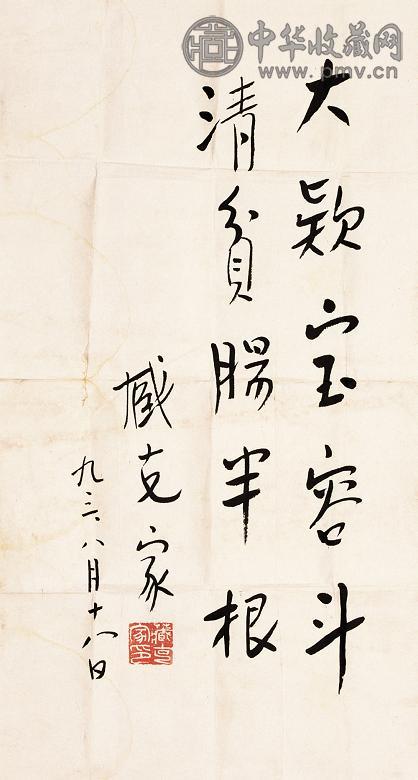 中华收藏网
www.pmv.cn
大欵宝容斗
清贫肠半根
臧克家
九三、八月十八日
臧克家印